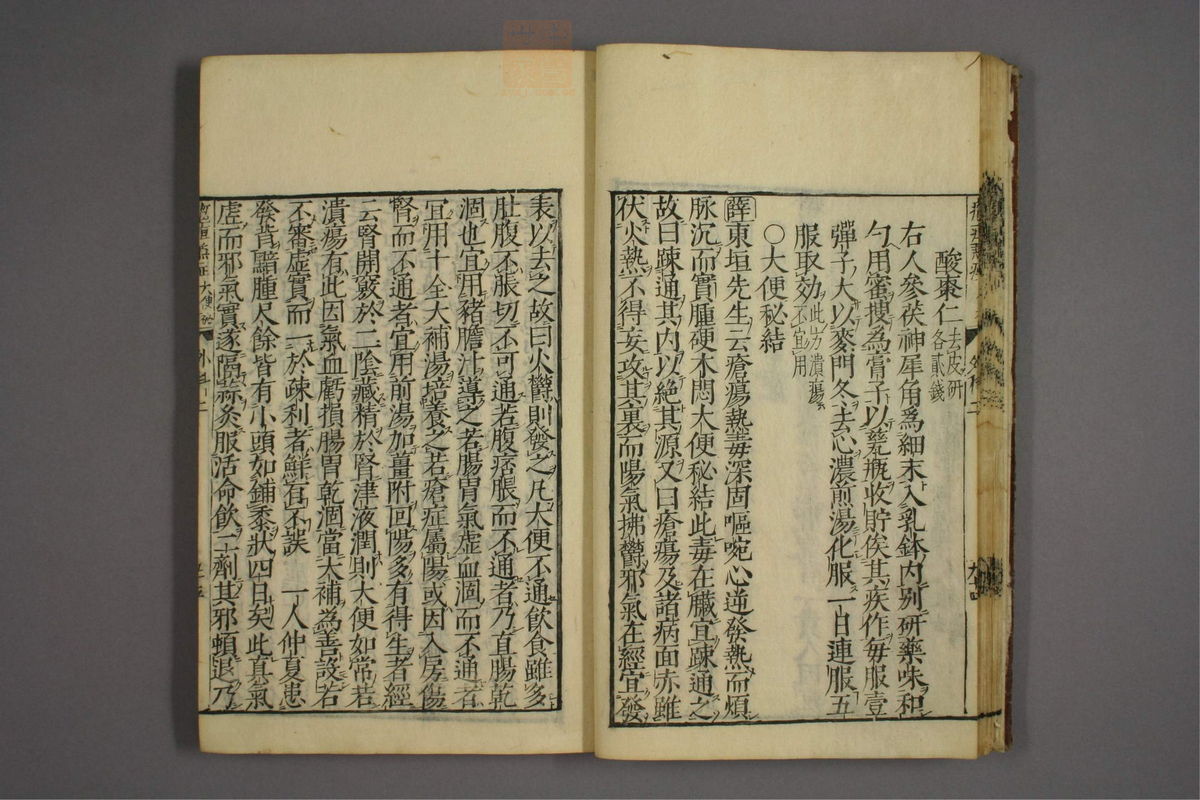 酸棗仁去皮研各貳錢
右人參茯神犀角爲細末入乳鉢内别研藥味和
勻用蜜搜爲膏子以甆瓶收貯俟其疾作每服壹
彈子大以麥門冬去心濃煎湯化服一日連服五
服取効此方潰瘍不宜用
○大便秘結
薛東垣先生云瘡瘍熱毒深固嘔啘心逆發熱而煩
脉沉而實腫硬木悶大便秘結此毒在臟宜疎通之
故曰疎通其内以絶其源又曰瘡瘍及諸病面赤雖
伏火熱不得妄攻其裏而陽氣拂鬱邪氣在經宜發
表以去之故曰火鬱則發之凡大便不通飲食雖多
肚腹不脹切不可通若腹痞脹而不通者乃直腸乾
涸也宜用豬膽汁導之若腸胃氣虚血涸而不通者
宜用十全大補湯培養之若瘡症屬陽或因入房傷
腎而不通者宜用前湯加薑附回陽多有得生者經
云腎開竅於二陰藏精於腎津液潤則大便如常若
潰瘍有此因氣血虧損腸胃乾涸當大補爲善設若
不審虚實而一於疎利者鮮有不誤 一人仲夏患
發背黯腫尺餘皆有小頭如鋪黍狀四日矣此真氣
虚而邪氣實遂隔蒜灸服活命飲二劑其邪頓退乃